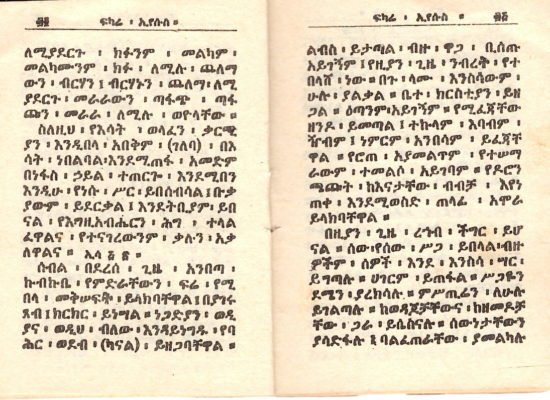 ፴፪ ፍካሬ ፡ ኢየሱስ ።
ለሚያደርጉ ፡ ክፉንም ፡ መልካም ፡
መልካሙንም ፡ ክፉ ፡ ለሚሉ ፡ ጨለማ
ውን ፡ ብርሃን ፤ ብርሃኑን ፡ ጨለማ ፡ ለሚ
ያደርጉ ፡ መራራውን ፡ ጣፋጭ ፡ ጣፋ
ጩን ፡ መራራ ፡ ለሚሉ ፡ ወዮላቸው ።
ስለዚህ ፡ የእሳት ፡ ወላፈን ፡ ቃርሚ
ያን ፡ እንዲበላ ፡ አበቅም ፡ (ገለባ) ፡ በእ
ሳት ፡ ነበልባል ፡ እንደሚጠፋ ፡ አመድም
በነፋስ ፡ ኃይል ፡ ተጠርጎ ፡ እንደሚበን
እንዲሁ ፡ የነሱ ፡ ሥር ፡ ይበሰብሳል ፤ ቡቃ
ያውም ፡ ይደርቃል ፤ እንደትቢያም ፡ ይበ
ናል ፡ የእግዚአብሔርን ፡ ሕግ ፡ ተላል
ፈዋልና ፡ የተናገረውንም ፡ ቃሉን ፡ አቃ
ለዋልና ።
ሰብል ፡ በደረሰ ፡ ጊዜ ፡ አንበጣ ፡
ኩብኩቤ ፡ የምድራቸውን ፡ ፍሬ ፡ የሚ
በላ ፡ መቅሠፍት ፡ ይላክባቸዋል ፤ በያገሩ
ጸብ ፤ ክርክር ፡ ይነግሣል ። ነጋድያን ፡ ወዲ
ያና ፡ ወዲህ ፡ ብለው ፡ እንዳይነግዱ ፡ የባ
ሕር ፡ ወደብ ፡ (ካናል) ፡ ይዘጋባቸዋል ።
ፍካሬ ፡ ኢየሱስ ።
ልብስ ፡ ይታጣል ፡ ብዙ ፡ ዋጋ ፡ ቢሰጡ
አይገኝም ፤ የዚያን ፡ ጊዜ ፡ ንብረቅ ፡ የተ
በላሸ ፡ ነው ። በጉ ፡ ላሙ ፡ እንስሳውም ፡
ሁሉ ፡ ያልቃል ፡ ቤተ ፡ ክርስቲያን ፡ ይዘ
ጋል ። ዕጣንም ፡ አይገኝም ። የሚፈጃቸው
ዘንዶ ፡ ይመጣል ፤ ተኩላም ፡ እባብም ፡
ዥብም ፤ ነምርም ፡ አንበሳም ፡ ይፈጃቸ
ዋል ። የሮጠ ፡ አያመልጥም ፡ የተሠማ
ራውም ፡ ተመልሶ ፡ አይገባም ። የዶሮን
ጫጩት ፡ ከእናታቸው ፡ ብብቻ ፡ እየነ
ጠቀ ፡ እንደሚወስድ ፡ ጠላፊ ፡ አሞራ
ይላክባቸዋል ።
በዚያን ፡ ጊዜ ፡ ረኀብ ፡ ችግር ፡ ይሆ
ናል ። ሰው ፡ የሰው ፡ ሥጋ ፡ ይበላል ፡ ብዙ
ዎችም ፡ ሰዎች ፡ እንደ ፡ እንስሳ ፡ ሣር ፡
ይግጣሉ ። ሀገርም ፡ ይጠፋል ። ሥጋዬን
ደሜን ፡ ያረክሳሉ ። ምሥጢሬን ፡ ለሁሉ
ይገልጣሉ ። ከወዳጆቻቸውና ፡ ከዘመዶቻ
ቸው ፡ ጋራ ፡ ይሴስናሉ ። ሰውነታቸውን
ያሳድፋሉ ፤ ባልፈጠራቸው ፡ ያመልካሉ